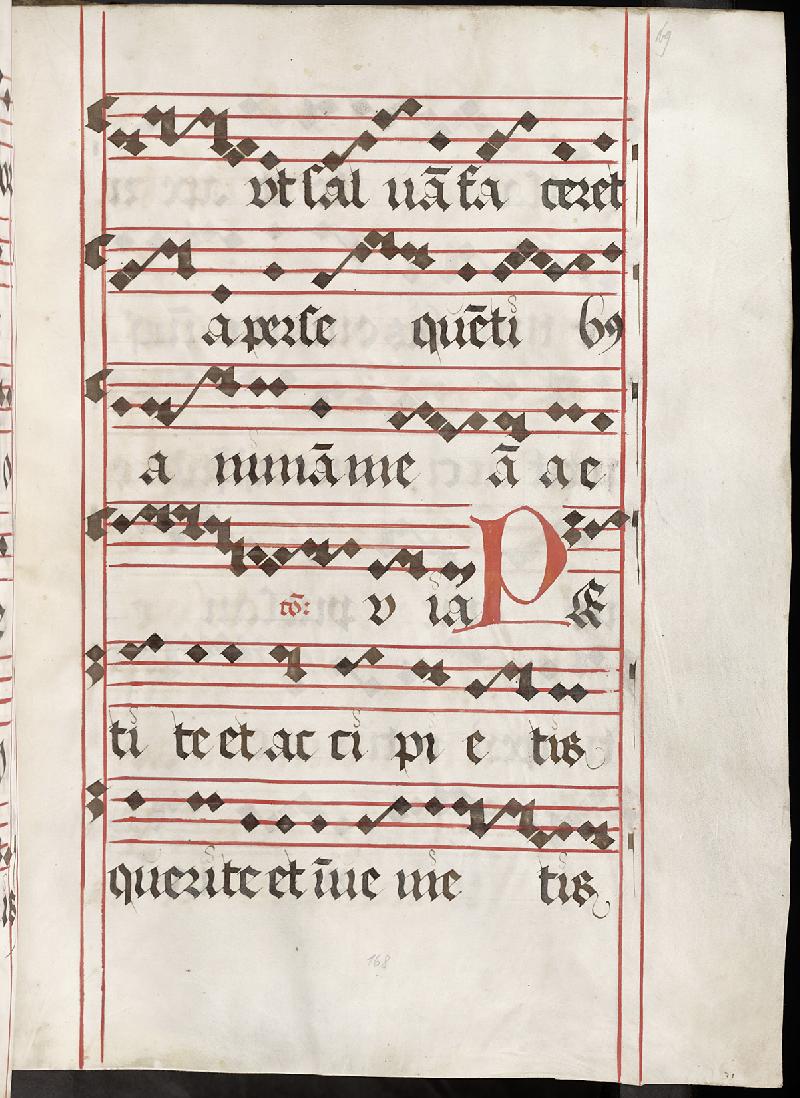 69
vt sal uā fa ceret
a perse quēti bꝰ
a nimā me ā a e
cō: v iā P &
ti te et ac ci pi e tis
querite et īue nie tis
168